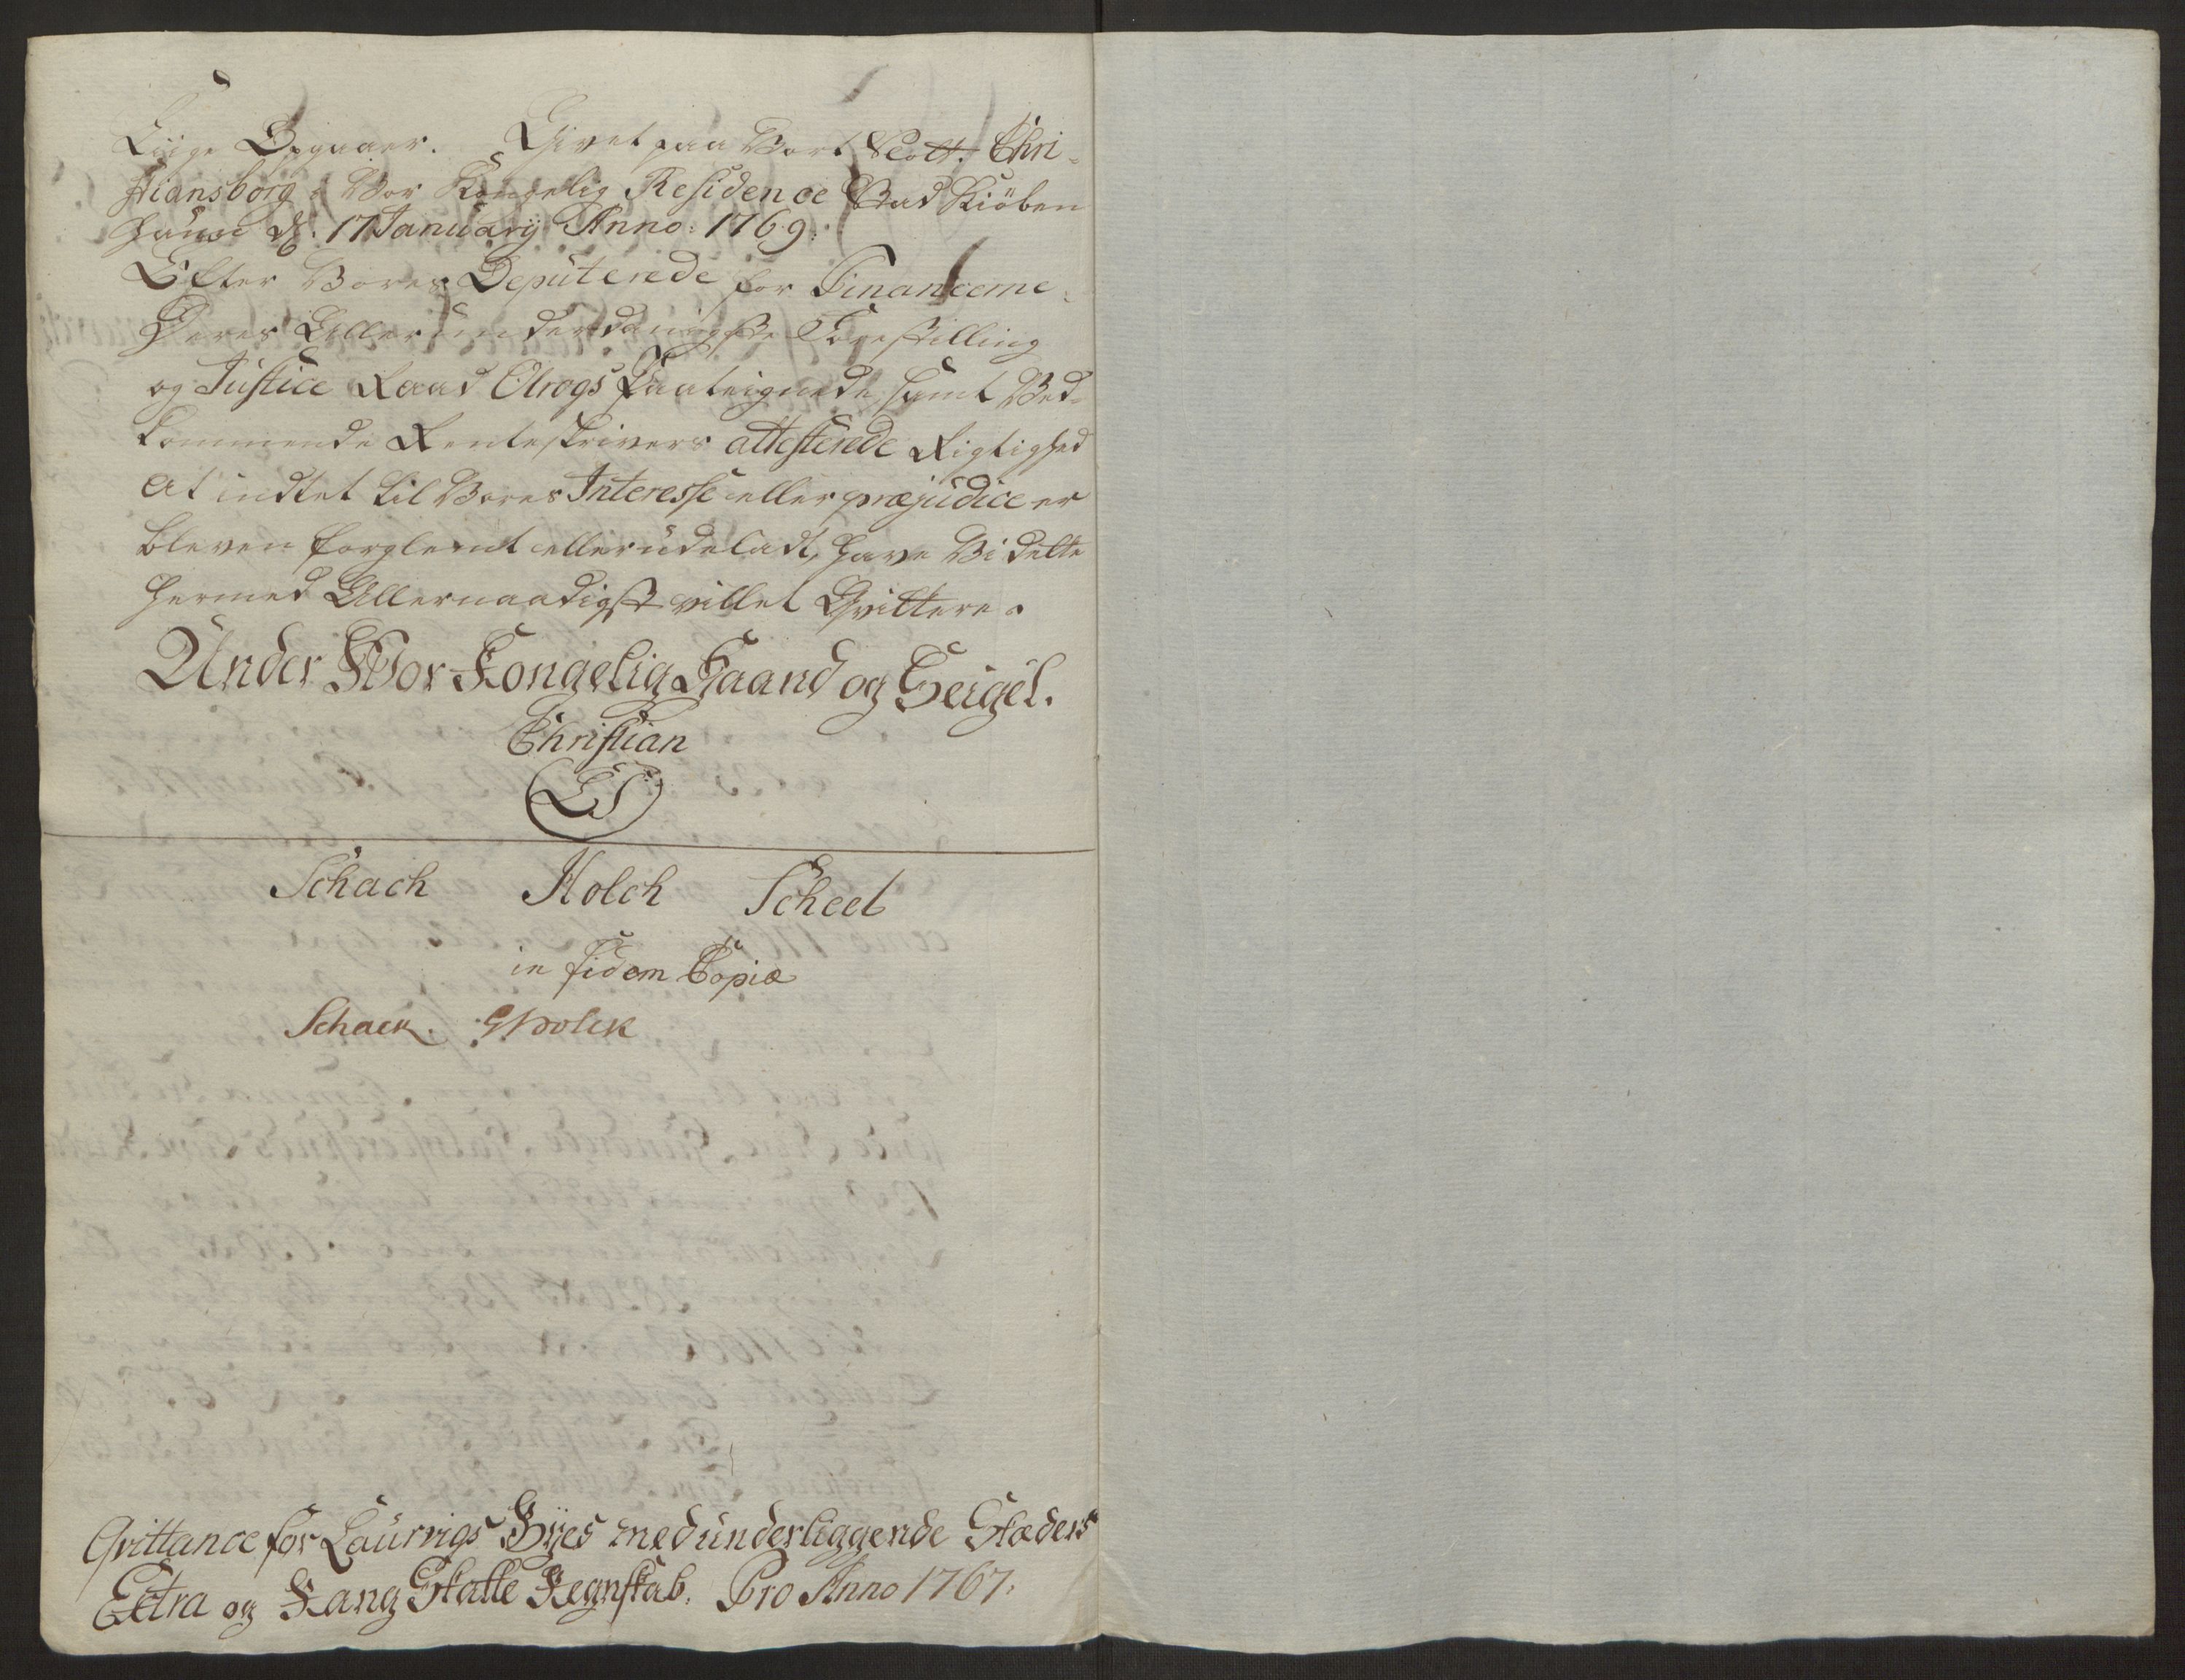 Givet paa Vort Slott Chri-
stiansborg i Vor Kongelig Residence Stad Kiöben
haun d. 17 Januarÿ Anno: 1769.
Efter Vores Deputerede for Financerne
Deres Allerunderdanigste Forestilling
og Justice Raad Olrogs Paateignede, samt Ved-
kommende Renteskrivers attesterede Rigtighed
at indtet til Vores Interesse eller præjudice er
bleven forglemt eller udeladt, have Vi dette
hermed Allernaadigst villet Qvittere.
Under Vor Kongelig Haand og Seigel.
Christian
LS
Schach Holch Scheel
in fidem Copiæ
Schack. GHolck
Qvittance for Laurvigs Byes med underliggende Stæders
Extra og Rang Skatte Regnskab. Pro Anno 1767.